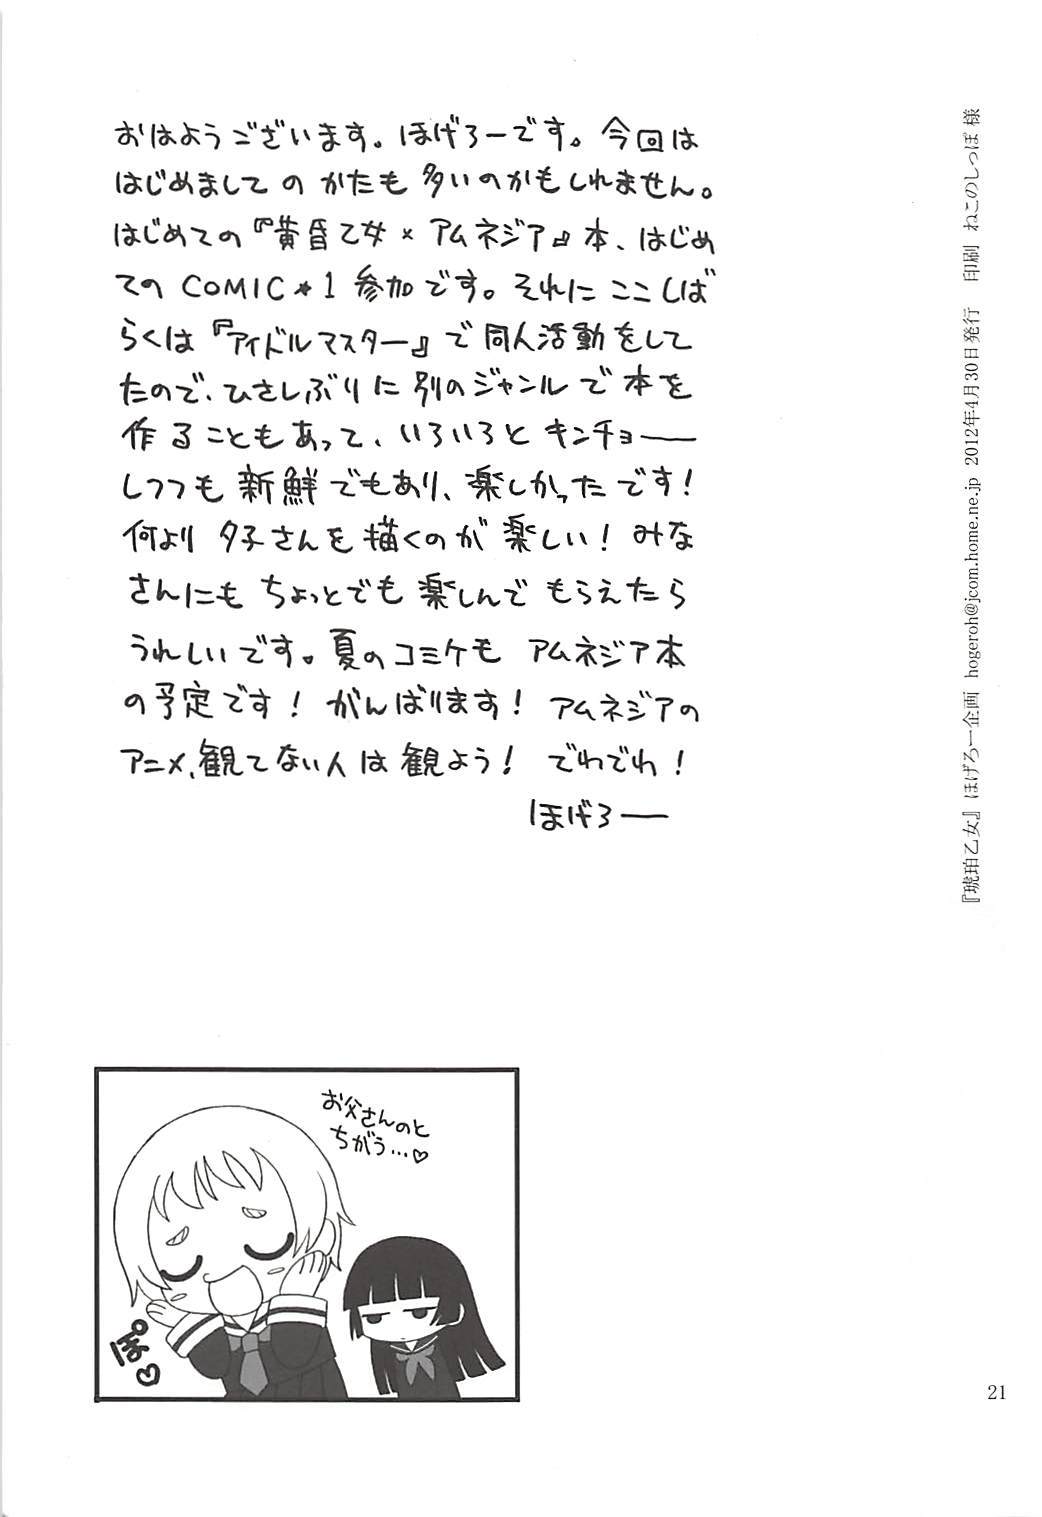 おはようございます。ほげろーです。今回は
はじめましての かたも 多いのかもしれません。
はじめての『黄昏乙女×アムネジア』本、はじめ
ての COMIC★1 参加です。それに ここしば
らくは『アイドルマスター』で 同人活動をして
たので、ひさしぶりに 別のジャンルで 本を
作ることもあって、いろいろと キンチョー
しつつも 新鮮でもあり、楽しかったです！
何より 夕子さんを描くのが 楽しい！ みな
さんにも ちょっとでも 楽しんで もらえたら
うれしいです。夏のコミケも アムネジア本
の予定です！ がんばります！ アムネジアの
アニメ、観てない人は観よう！ でわでわ！
ほげろー
『琥珀乙女』 ほげろー企画 hogeroh@jcom.home.ne.jp 2012年4月30日発行 印刷 ねこのしっぽ 様
お父さんのと
ちがう…♡
ぽ♡
21